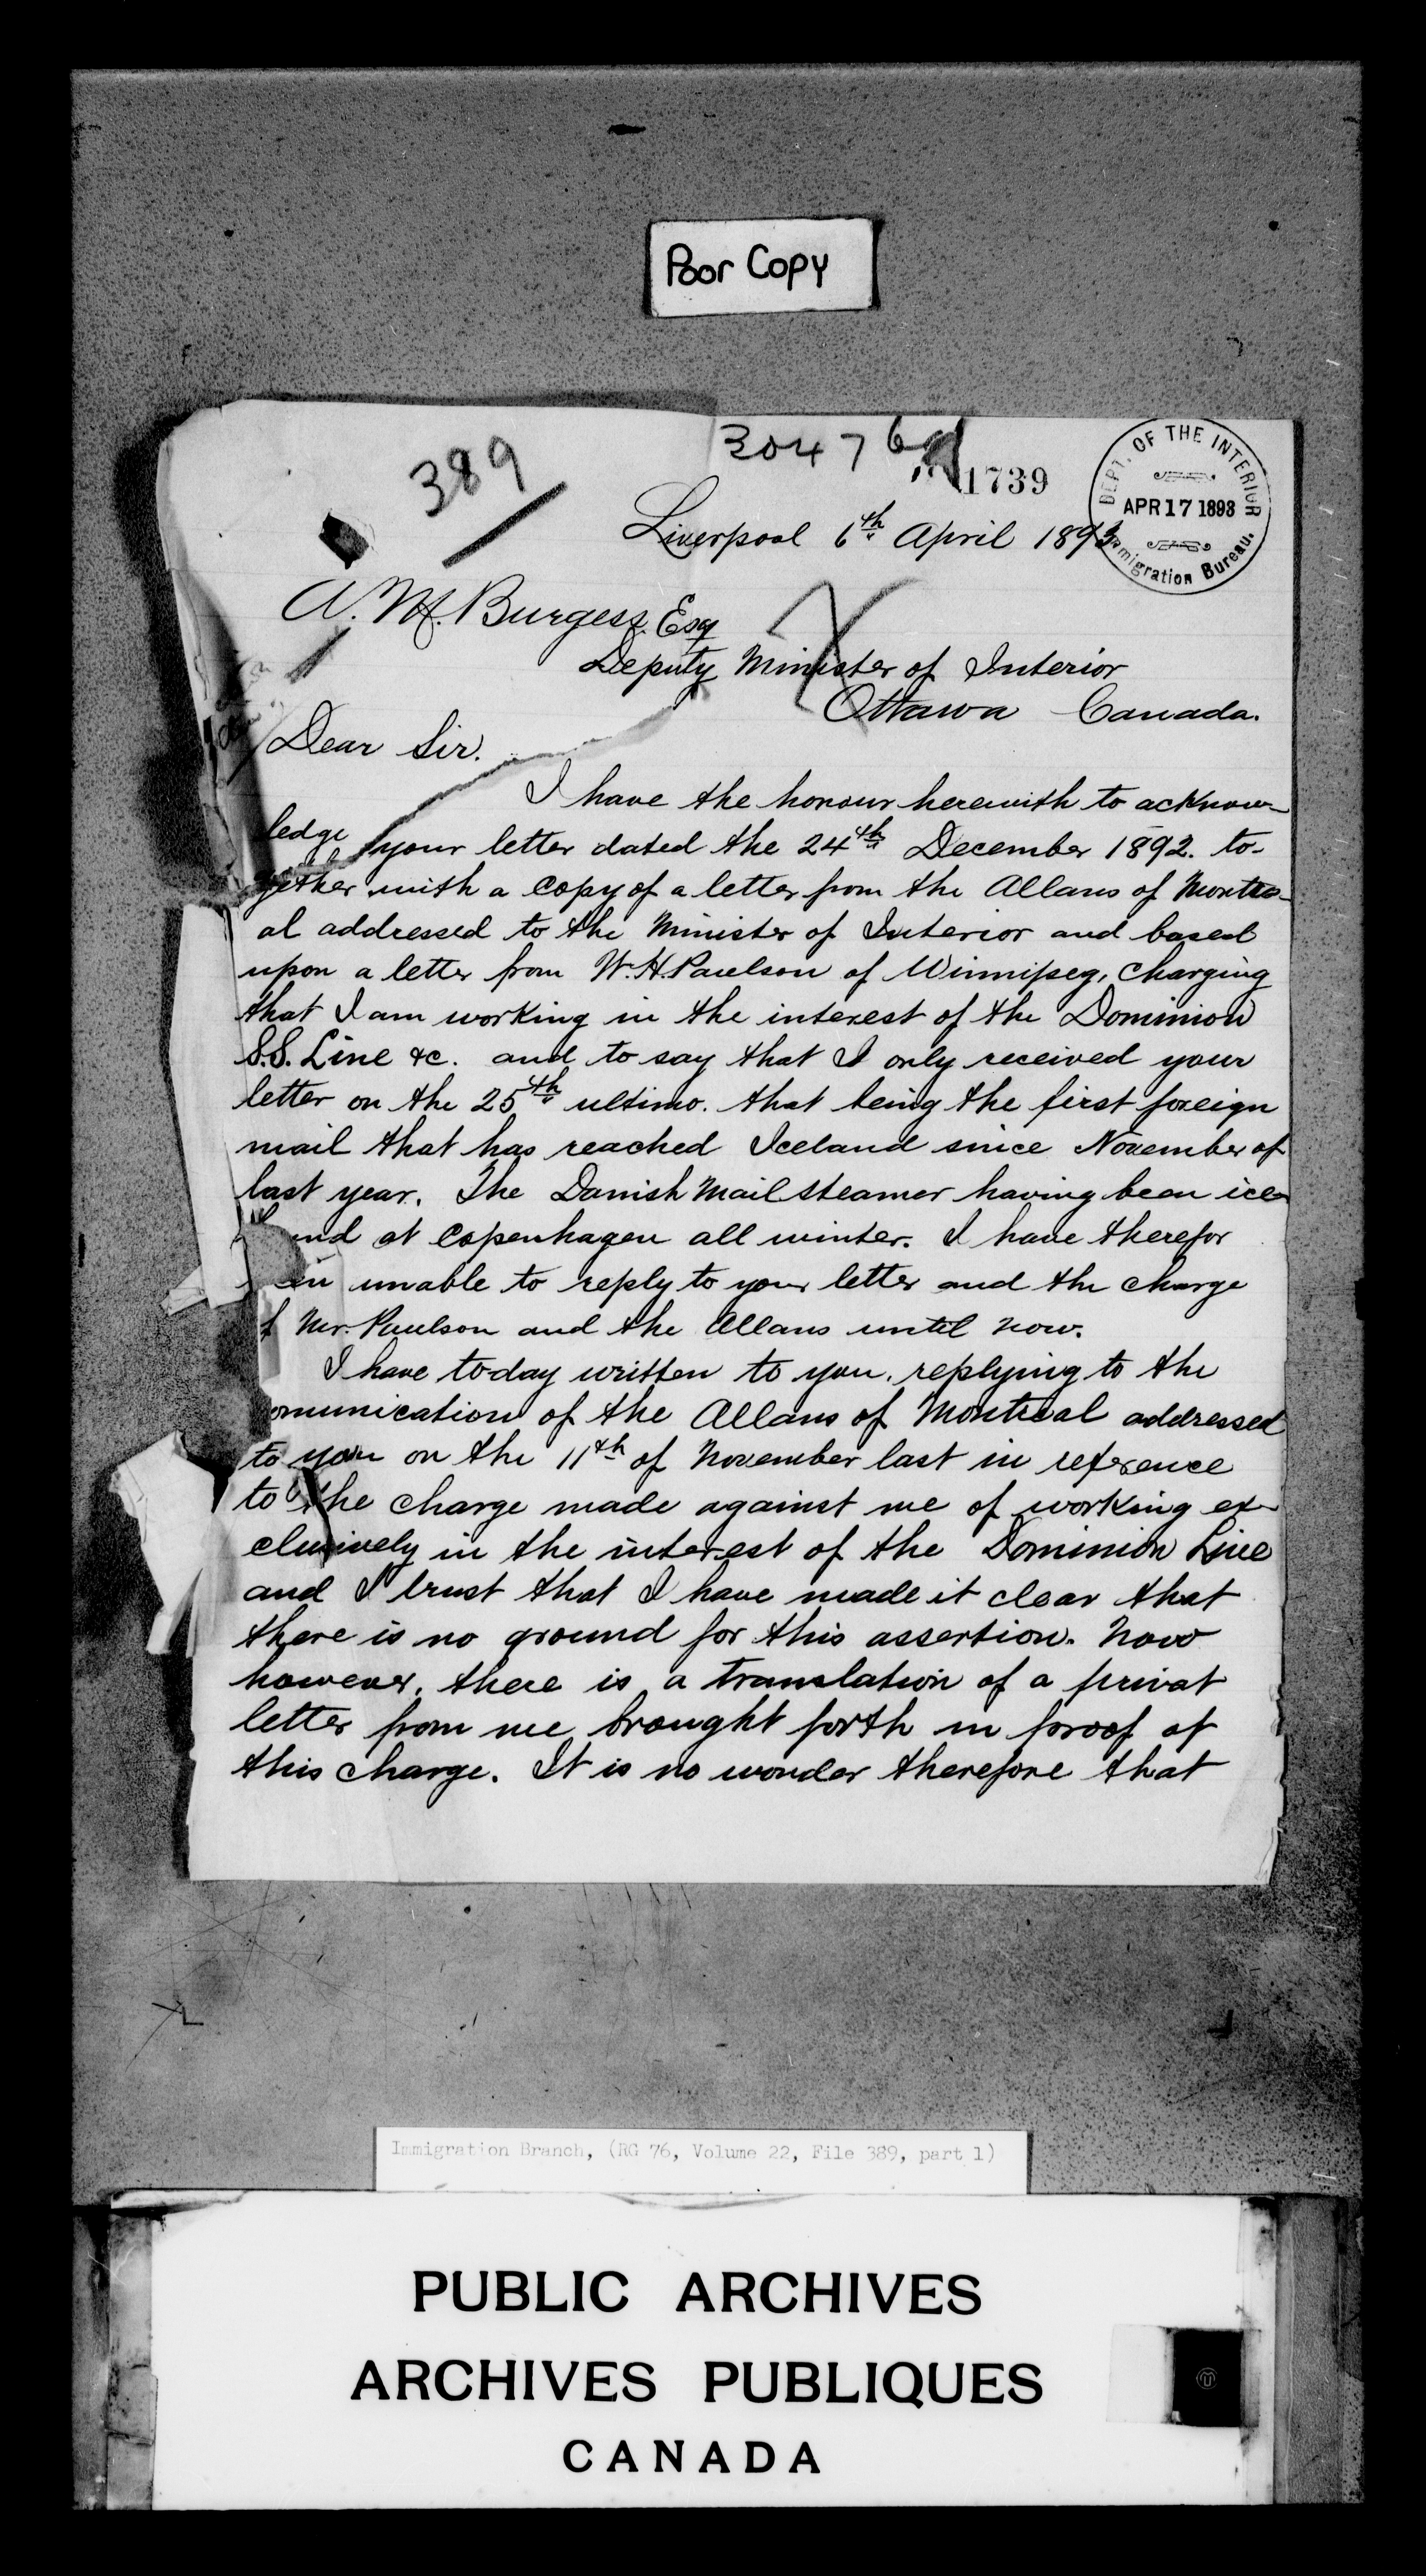 Poor Copy
389
30476
1739
DEPT. OF THE INTERIOR
APR 17 1893
Immigration Bureau.
Liverpool 6th April 1893
A. M. Burgess Esq
Deputy Minister of Interior
Ottawa Canada.
Dear Sir.
I have the honour herewith to acknow-
ledge your letter dated the 24th December 1892. to-
gether with a copy of a letter from the Allans of Montre-
al addressed to the Minister of Interior and based
upon a letter from W.H. Paulson of Winnipeg, charging
that I am working in the interest of the Dominion
S.S. Line &c. and to say that I only received your
letter on the 25th ultimo. that being the first foreign
mail that has reached Iceland since November of
last year. The Danish Mail steamer having been ice-
und at Copenhagen all winter. I have therefor
en unable to reply to your letter and the charge
f Mr. Paulson and the Allans until now.
I have today written to you, replying to the
omunication of the Allans of Montreal addressed
to you on the 11th of November last in reference
to the charge made against me of working ex-
clusively in the interest of the Dominion Line
and I trust that I have made it clear that
there is no ground for this assertion. Now
however, there is a translation of a privat
letter from me brought forth in proof of
this charge. It is no wonder therefore that
Immigration Branch, (RG 76, Volume 22, File 389, part 1)
PUBLIC ARCHIVES
ARCHIVES PUBLIQUES
CANADA